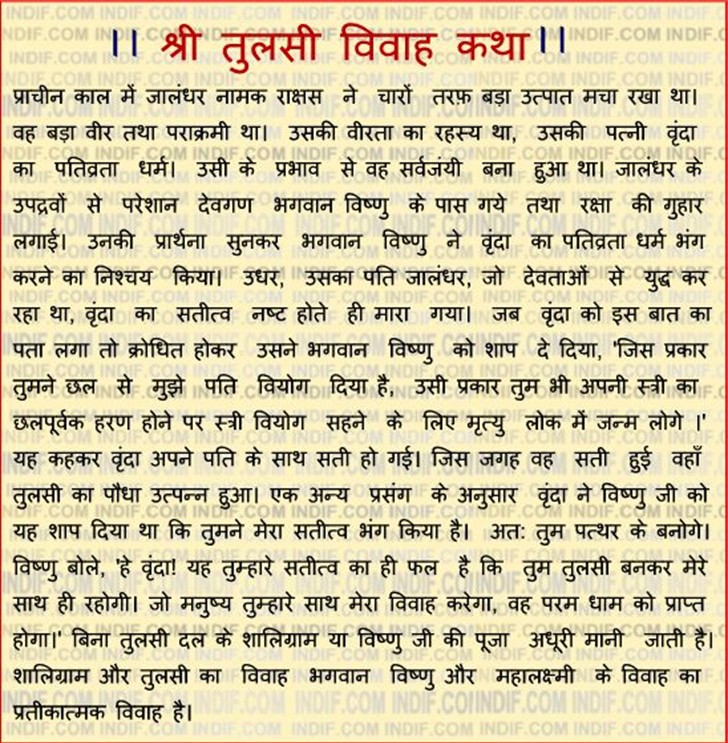 ।। श्री तुलसी विवाह कथा ।।
प्राचीन काल में जालंधर नामक राक्षस ने चारों तरफ़ बड़ा उत्पात मचा रखा था।
वह बड़ा वीर तथा पराक्रमी था। उसकी वीरता का रहस्य था, उसकी पत्नी वृंदा
का पतिव्रता धर्म। उसी के प्रभाव से वह सर्वजंयी बना हुआ था। जालंधर के
उपद्रवों से परेशान देवगण भगवान विष्णु के पास गये तथा रक्षा की गुहार
लगाई। उनकी प्रार्थना सुनकर भगवान विष्णु ने वृंदा का पतिव्रता धर्म भंग
करने का निश्चय किया। उधर, उसका पति जालंधर, जो देवताओं से युद्ध कर
रहा था, वृंदा का सतीत्व नष्ट होते ही मारा गया। जब वृंदा को इस बात का
पता लगा तो क्रोधित होकर उसने भगवान विष्णु को शाप दे दिया, 'जिस प्रकार
तुमने छल से मुझे पति वियोग दिया है, उसी प्रकार तुम भी अपनी स्त्री का
छलपूर्वक हरण होने पर स्त्री वियोग सहने के लिए मृत्यु लोक में जन्म लोगे ।'
यह कहकर वृंदा अपने पति के साथ सती हो गई। जिस जगह वह सती हुई वहाँ
तुलसी का पौधा उत्पन्न हुआ। एक अन्य प्रसंग के अनुसार वृंदा ने विष्णु जी को
यह शाप दिया था कि तुमने मेरा सतीत्व भंग किया है। अतः तुम पत्थर के बनोगे।
विष्णु बोले, 'हे वृंदा! यह तुम्हारे सतीत्व का ही फल है कि तुम तुलसी बनकर मेरे
साथ ही रहोगी। जो मनुष्य तुम्हारे साथ मेरा विवाह करेगा, वह परम धाम को प्राप्त
होगा।' बिना तुलसी दल के शालिग्राम या विष्णु जी की पूजा अधूरी मानी जाती है।
शालिग्राम और तुलसी का विवाह भगवान विष्णु और महालक्ष्मी के विवाह का
प्रतीकात्मक विवाह है।